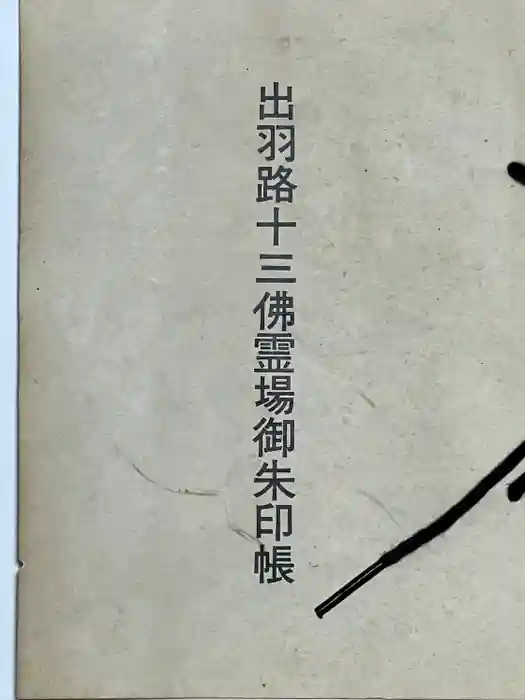 出羽路十三佛霊場御朱印帳